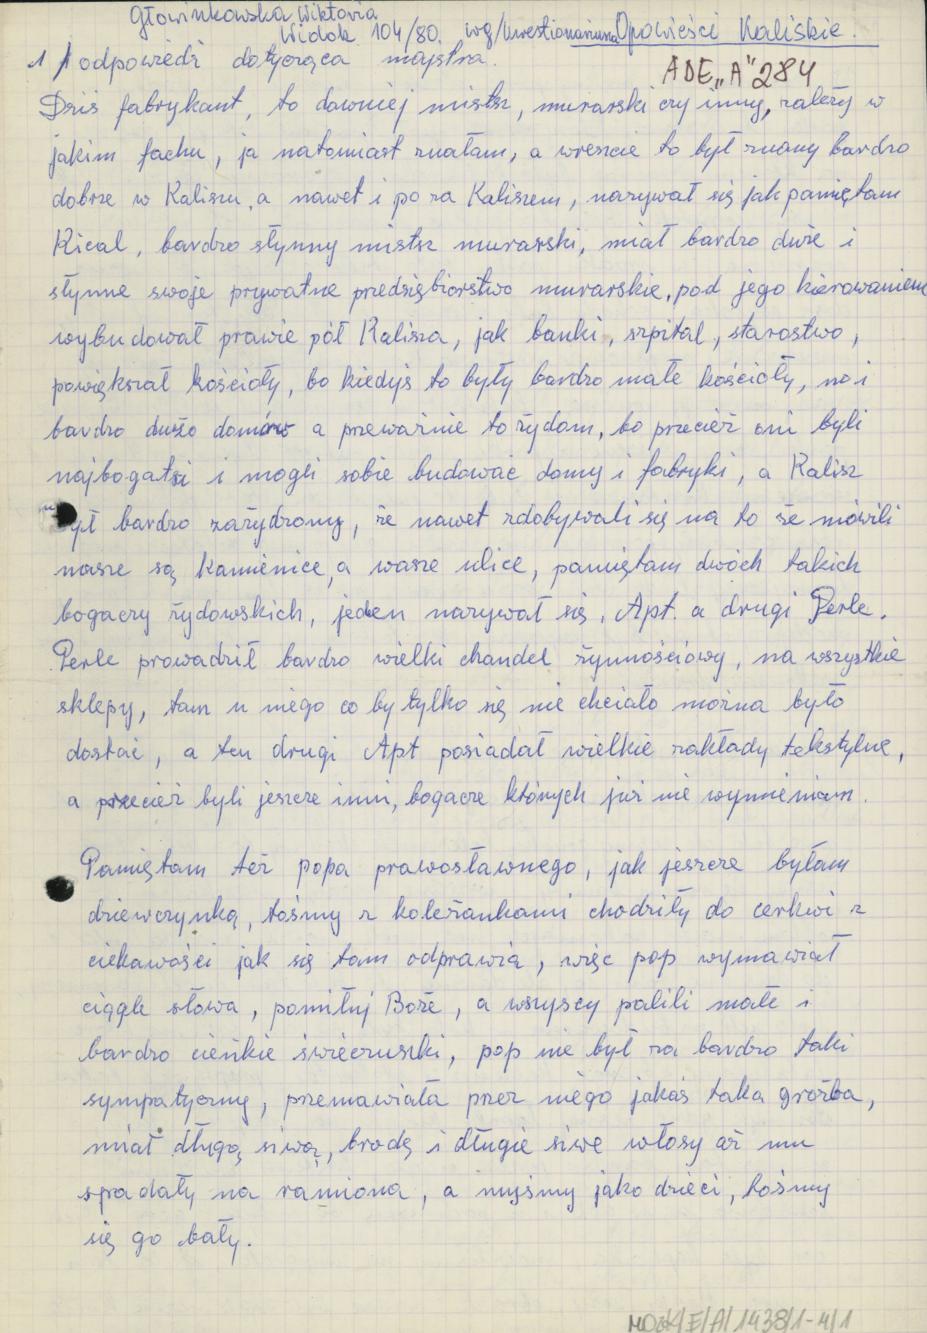 Głowinkowska Wiktoria
Widok 104/80. wg/kwestionariusza Opowieści Kaliskie.
1 odpowiedź dotycząca majstra.
ADE „A" 284
Dziś fabrykant, to dawniej mistsz, murarski czy inny, zależy w
jakim fachu, ja natomiast znałam, a wreszcie to był znany bardzo
dobrze w Kaliszu, a nawet i po za Kaliszem, nazywał się jak pamiętam
Kical, bardzo słynny mistsz murarski, miał bardzo duże i
słynne swoje prywatne przedsiębiorstwo murarskie, pod jego kierowaniem
wybudował prawie pół Kalisza, jak banki, szpital, starostwo,
powiększał kościoły, bo kiedyś to były bardzo małe kościoły, no i
bardzo dużo domów a przeważnie to żydom, bo przecież oni byli
najbogatsi i mogli sobie budować domy i fabryki, a Kalisz
był bardzo zażydzony, że nawet zdobywali się na to że mówili
nasze są kamienice, a wasze ulice, pamiętam dwóch takich
bogaczy żydowskich, jeden nazywał się, Apt. a drugi Perle.
Perle prowadził bardzo wielki chandel żywnościowy, na wszystkie
sklepy, tam u niego co by tylko się nie chciało można było
dostać, a ten drugi Apt posiadał wielkie zakłady tekstylne,
a przecież byli jeszcze inni, bogacze których już nie wymieniam.
Pamiętam też popa prawosławnego, jak jeszcze byłam
dziewczynką, tośmy z koleżankami chodziły do cerkwi z
ciekawości jak się tam odprawia, więc pop wymawiał
ciągle słowa, pomiłuj Boże, a wszyscy palili małe i
bardzo cieńkie świeczuszki, pop nie był za bardzo taki
sympatyczny, przemawiała przez niego jakaś taka groźba,
miał długą, siwą, brodę i długie siwe włosy aż mu
spadały na ramiona, a myśmy jako dzieci, tośmy
się go bały.
MOZK/E/A/1438/1-4/1